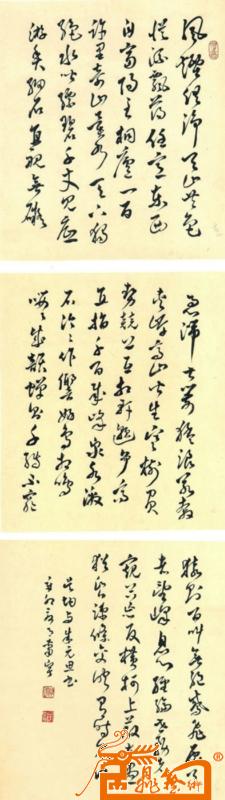 风烟俱净天山共色
从流飘荡任意东西
自富阳至桐庐一百
许里奇山异水天下独
绝水皆缥碧千丈见底
游鱼细石直视无碍
急湍甚箭猛浪若奔
夹岸高山皆生寒树负
势竞上互相轩邈争高
直指千百成峰泉水激
石泠泠作响好鸟相鸣
嘤嘤成韵蝉则千转不穷
猿则百叫无绝鸢飞戾天
者望峰息心经纶世务者
窥谷忘反横柯上蔽在昼
犹昏疏条交映有时见日
吴均与朱元思书